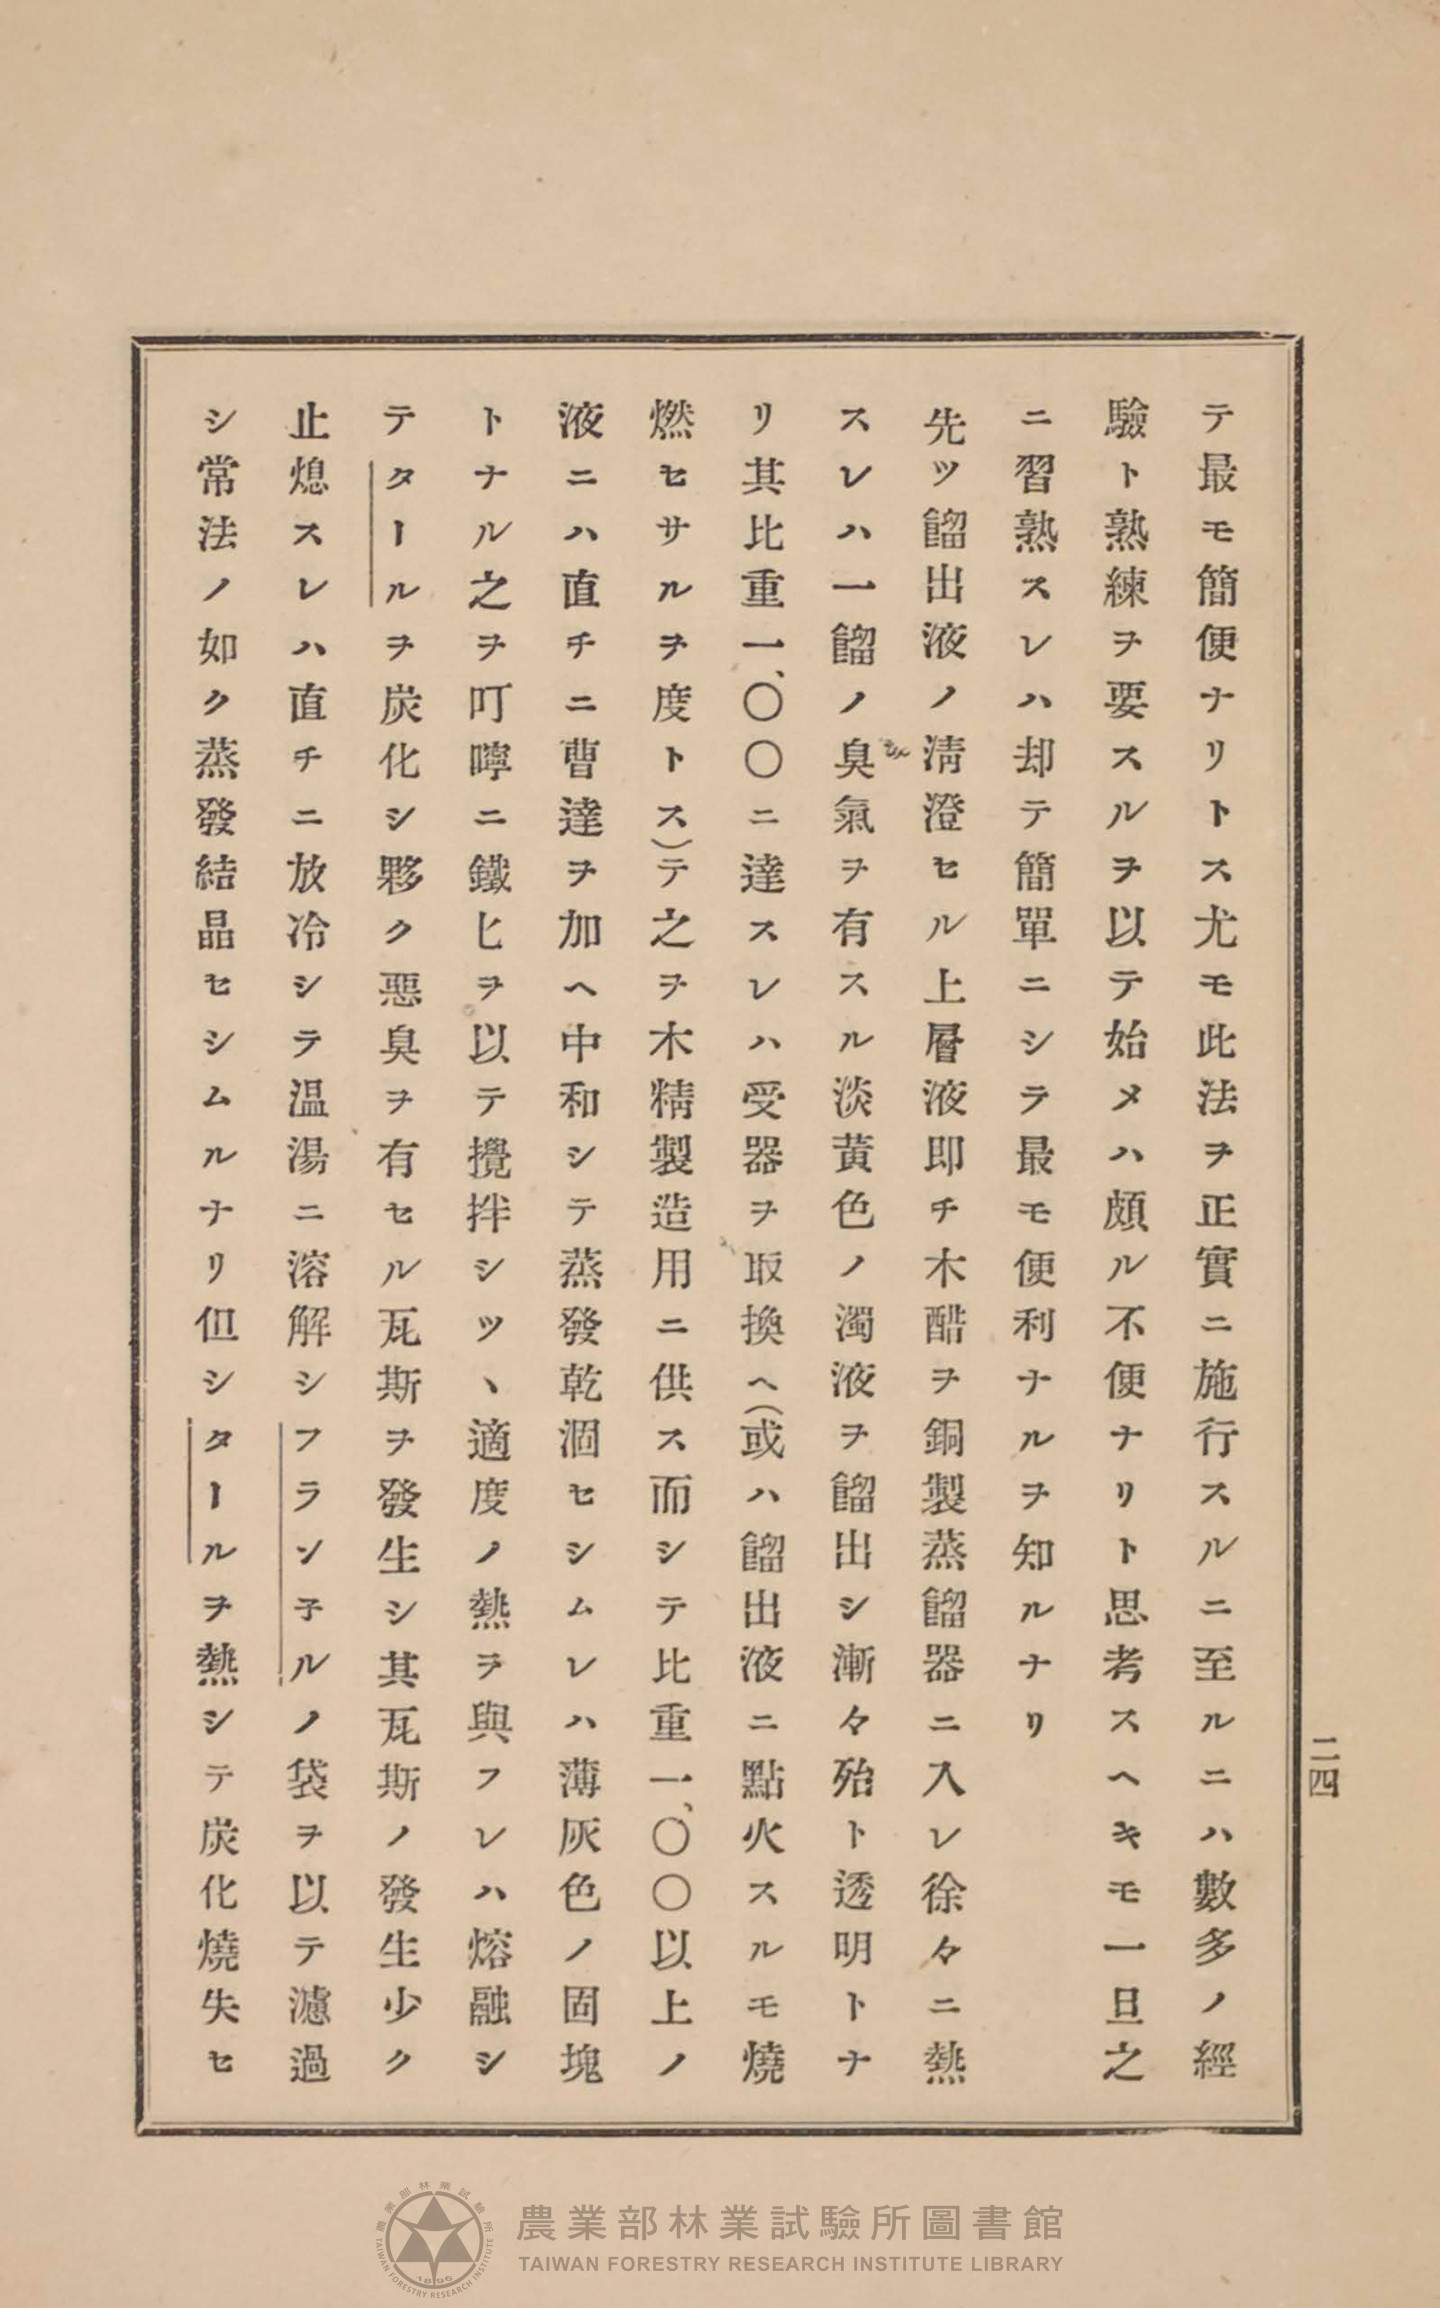 テ最モ簡便ナリトス尤モ此法ヲ正實ニ施行スルニ至ルニハ數多ノ經
驗ト熟練ヲ要スルヲ以テ始メハ頗ル不便ナリト思考スヘキモ一旦之
ニ習熟スレハ却テ簡單ニシテ最モ便利ナルヲ知ルナリ
先ツ餾出液ノ淸澄セル上層液即チ木醋ヲ銅製蒸餾器ニ入レ徐々ニ熱
スレハ一餾ノ臭氣ヲ有スル淡黃色ノ濁液ヲ餾出シ漸々殆ト透明トナ
リ其比重一、〇〇ニ達スレハ受器ヲ取換ヘ(或ハ餾出液ニ點火スルモ燒
燃セサルヲ度トス)テ之ヲ木精製造用ニ供ス而シテ比重一、〇〇以上ノ
液ニハ直チニ曹達ヲ加ヘ中和シテ蒸發乾涸セシムレハ薄灰色ノ固塊
トナル之ヲ叮嚀ニ鐵匕ヲ以テ攪拌シツヽ適度ノ熱ヲ與フレハ熔融シ
テタールヲ炭化シ夥ク惡臭ヲ有セル瓦斯ヲ發生シ其瓦斯ノ發生少ク
止熄スレハ直チニ放冷シテ温湯ニ溶解シフランネルノ袋ヲ以テ濾過
シ常法ノ如ク蒸發結晶セシムルナリ但シタールヲ熱シテ炭化燒失セ
二四
農業部林業試驗所圖書館
TAIWAN FORESTRY RESEARCH INSTITUTE LIBRARY
農業部林業試驗所
TAIWAN FORESTRY RESEARCH INSTITUTE
1896